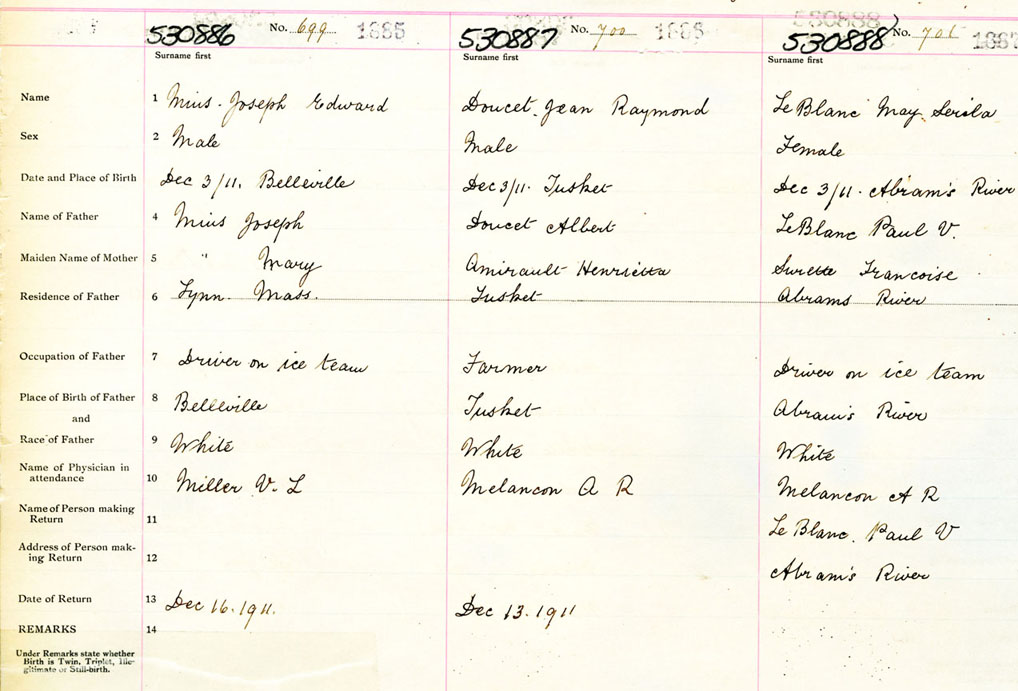 530886 No. 699 1885 530887 No. 700 530888 No. 701
Surname first Surname first Surname first
Name 1 Mius. Joseph Edward Doucet Jean Raymond LeBlanc May Serila
Sex 2 Male Male Female
Date and Place of Birth Dec 3/11. Belleville Dec 3/11. Tusket Dec 3/11. Abram's River
Name of Father 4 Mius Joseph Doucet Albert LeBlanc Paul V.
Maiden Name of Mother 5 " Mary Amirault Henrietta Surette Francoise
Residence of Father 6 Lynn. Mass. Tusket Abrams River
Occupation of Father 7 Driver on ice team Farmer Driver on ice team
Place of Birth of Father 8 Belleville Tusket Abram's River
and
Race of Father 9 White White White
Name of Physician in
attendance 10 Miller V. L Melancon A R Melancon A R
Name of Person making
Return 11 Le Blanc. Paul V
Address of Person mak-
ing Return 12 Abram's River
Date of Return 13 Dec 16. 1911. Dec 13. 1911
REMARKS 14
Under Remarks state whether
Birth is Twin, Triplet, Ille-
gitimate or Still-birth.